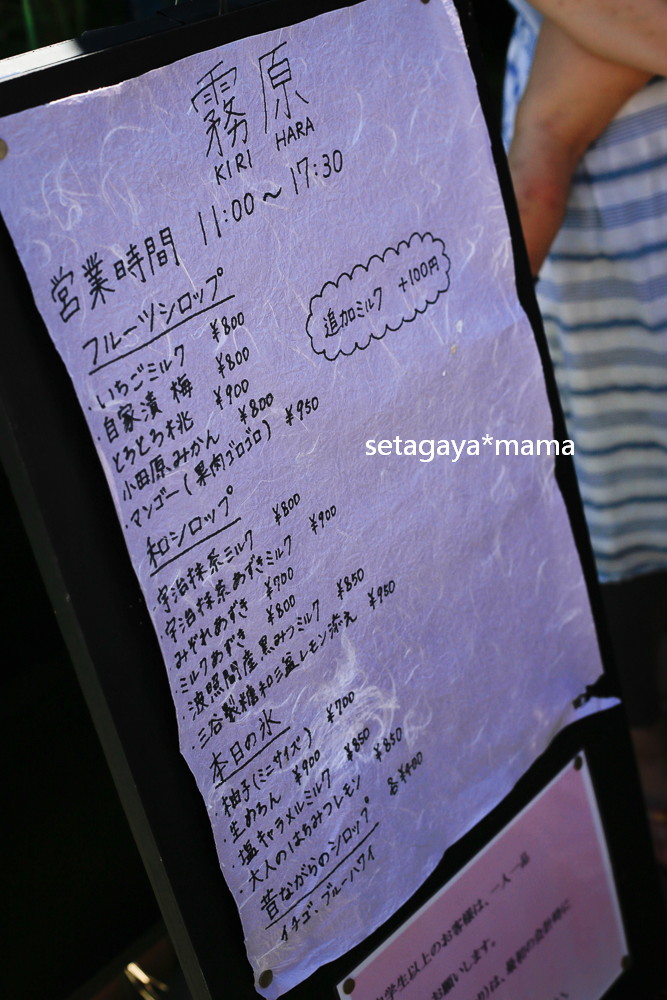 霧原
KIRI HARA
営業時間 11:00〜17:30
追加ミルク +100円
フルーツシロップ
・いちごミルク ¥800
・自家漬 梅 ¥800
・とろとろ桃 ¥900
・小田原みかん ¥800
・マンゴー(果肉ゴロゴロ) ¥950
和シロップ
・宇治抹茶ミルク ¥800
・宇治抹茶あずきミルク ¥900
・みぞれあずき ¥700
・ミルクあずき ¥800
・波照間産黒みつミルク ¥850
・三谷製糖和三盆レモン添え ¥950
本日の氷
・柚子(ミニサイズ) ¥700
・生めろん ¥900
・塩キャラメルミルク ¥850
・大人のはちみつレモン ¥850
昔ながらのシロップ 各¥400
イチゴ・ブルーハワイ
setagaya*mama
学生以上のお客様は、一人一品
お願いします。
は、最初の会計時に